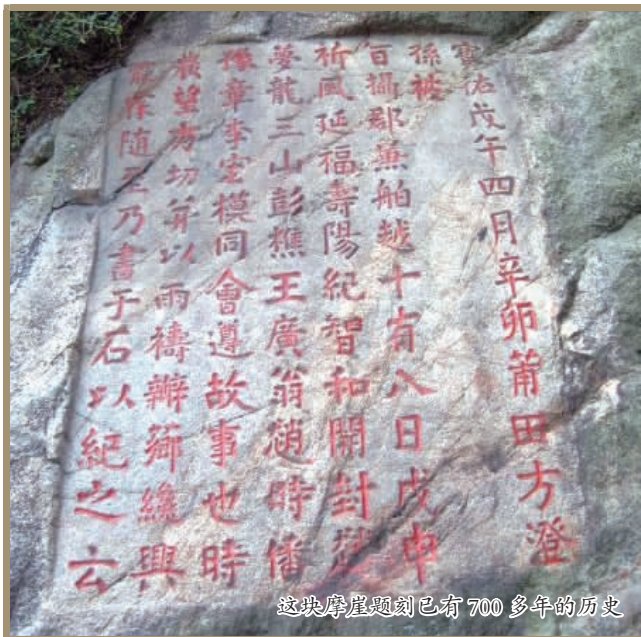 寶祐戊午四月辛卯莆田方澄
孫被
旨攝郡兼舶越十有八日戊申
祈風延福壽陽紀智和開封
夢龍三山彭樵王廣翁趙時
豫章李宏模同會遵故事也時
農望方切并以雨禱瓣薌纔興
霡霂隨至乃書于石以紀之云
这块摩崖题刻已有 700 多年的历史